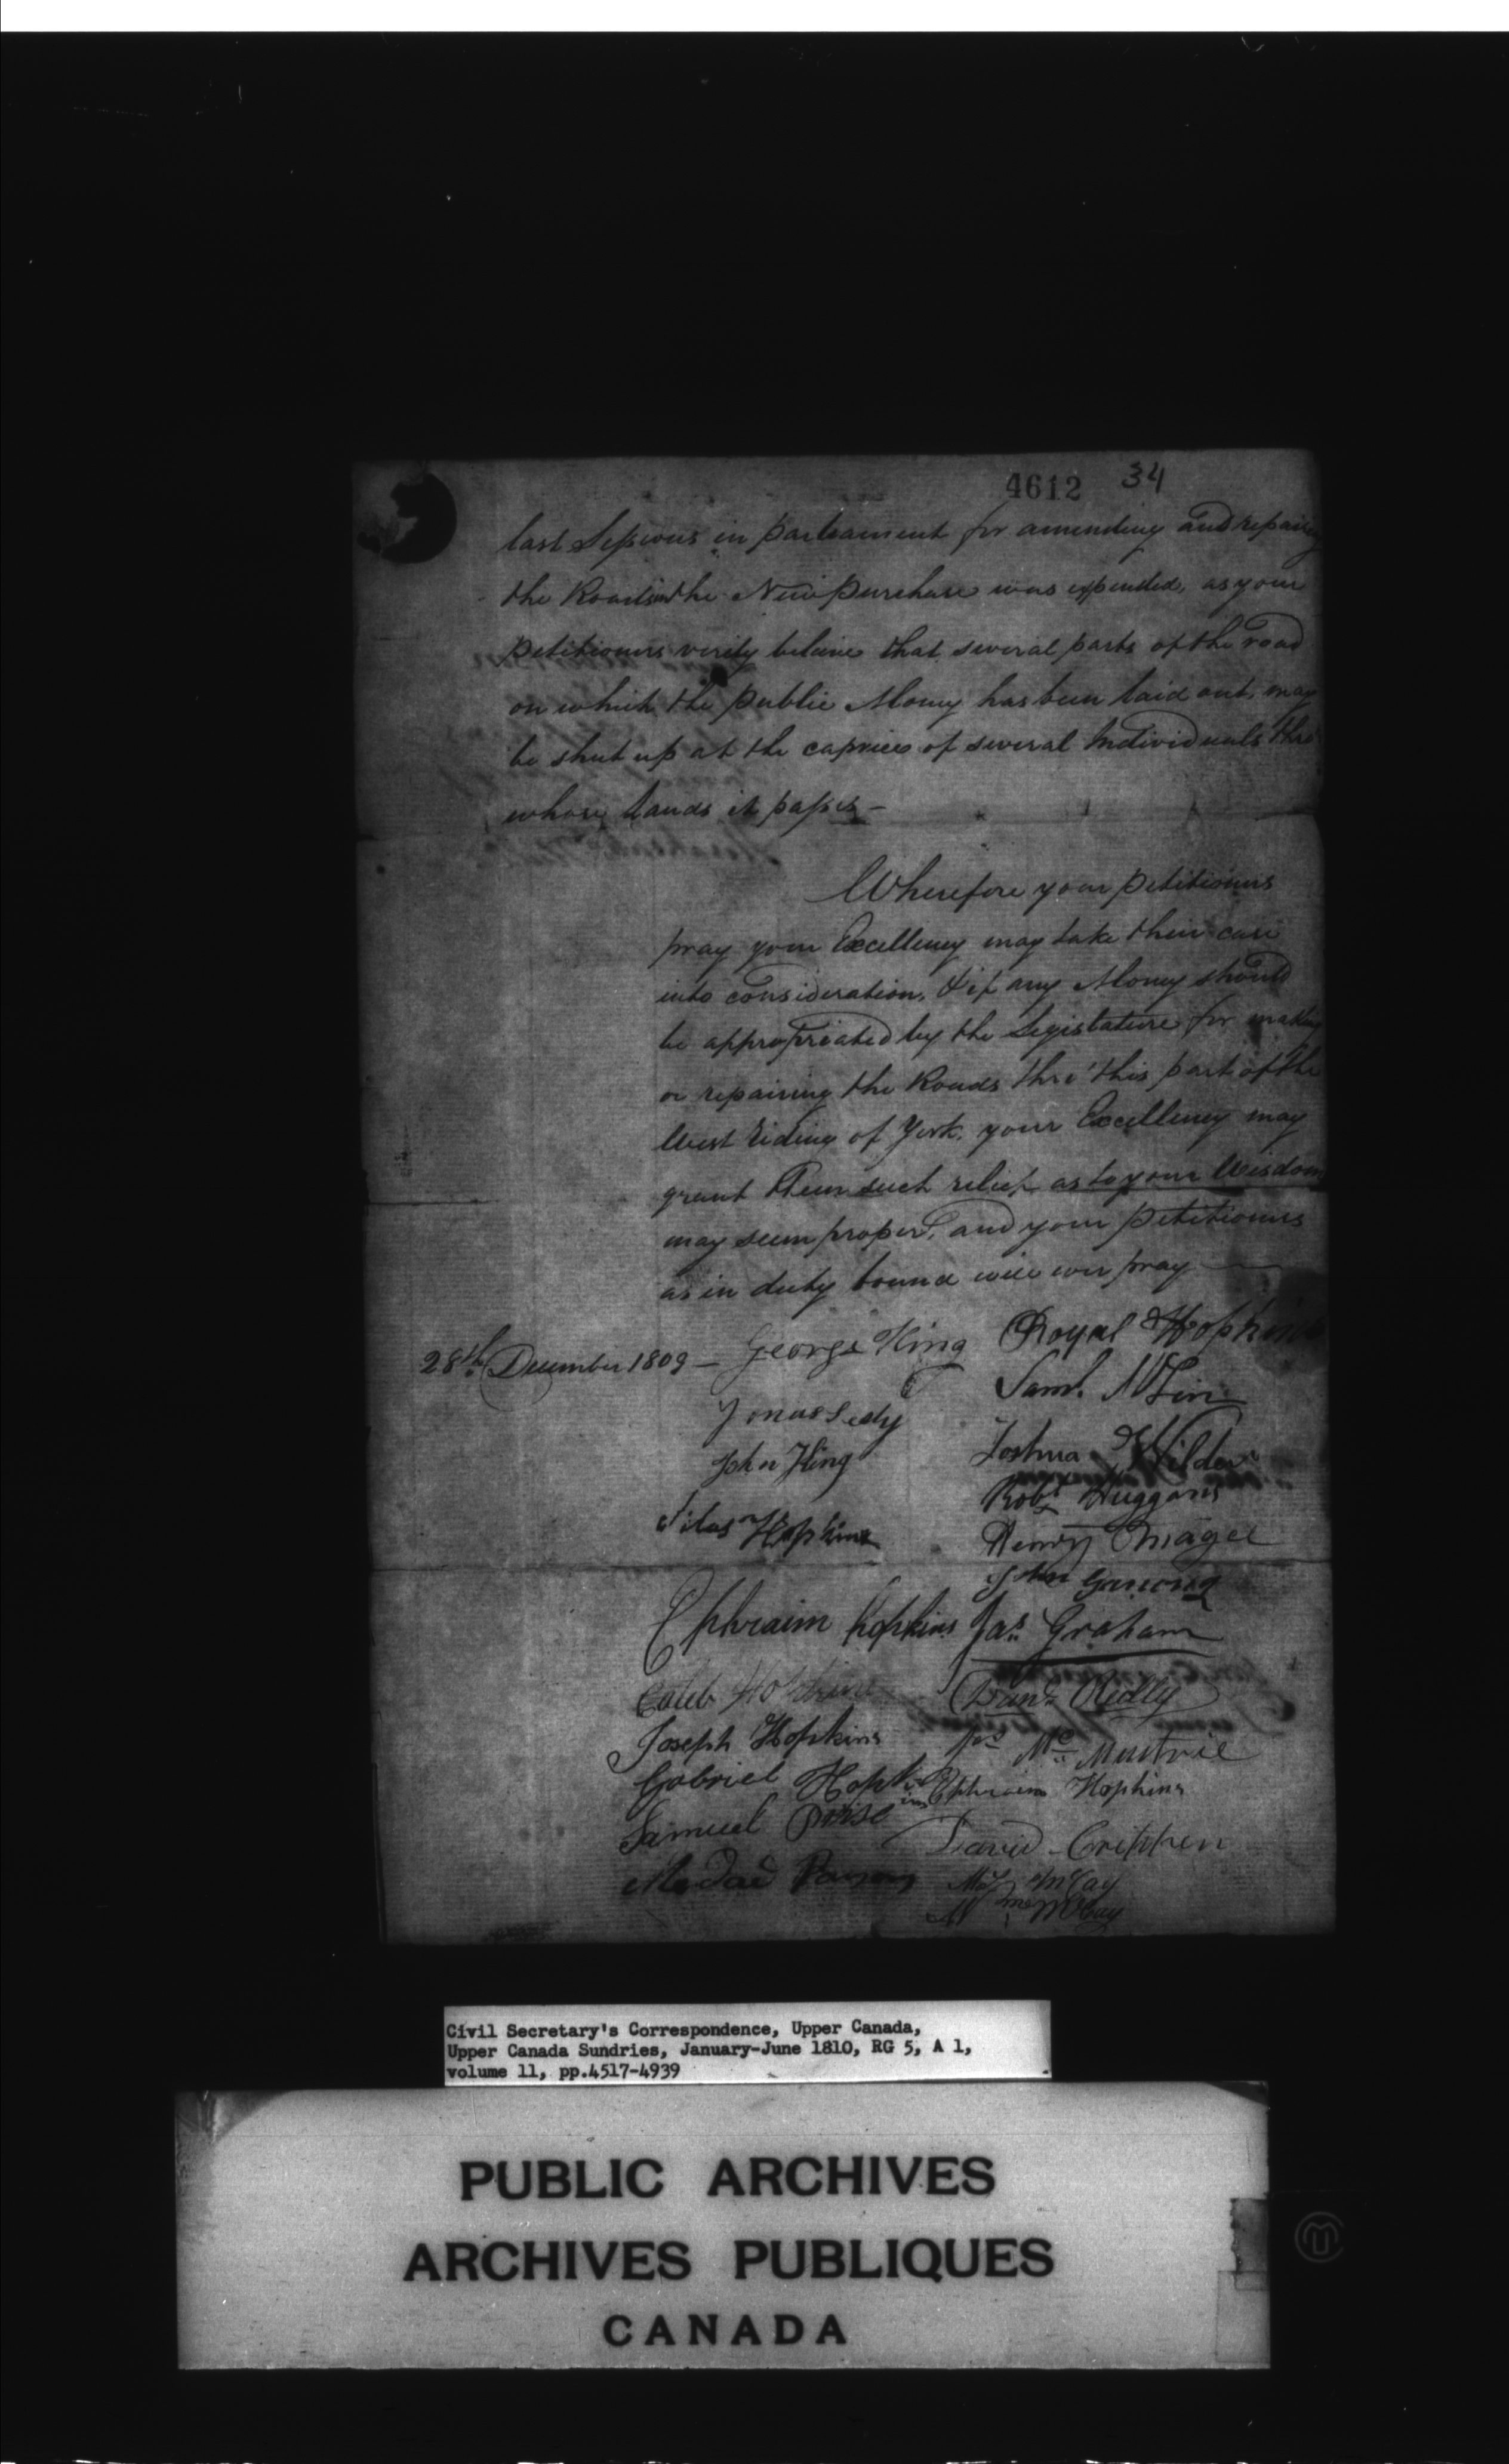 4612 34
last Sessions in parleament for amending and repairing
the Roads in the New purchase was expended, as your
petitioners verily believe that several parts of the road
on which the public Money has been laid out, may
be shut up at the caprice of several Individuals thro'
whose lands it passes –
Wherefore your petitioners
pray your Excellency may take their case
into consideration, & if any Money should
be appropriated by the Legislature for making
or repairing the Roads thro' this part of the
West Riding of York, your Excellency may
grant them such relief as to your Wisdom
may seem proper, and your petitioners
as in duty bound will ever pray —
28th December 1809 –
George King
Jonas Seely
John King
Silas Hopkins
Ephraim Hopkins
Caleb Hopkins
Joseph Hopkins
Gabriel Hopkins
Samuel
Medad Parsons
Royal Hopkins
Saml.
Joshua Wilder
Robt Huggans
Henry Magee
John
Jas. Graham
Danl. Reilly
Mc
Ephraim Hopkins
David Crippen
McCay
Wm McCay
Civil Secretary's Correspondence, Upper Canada,
Upper Canada Sundries, January-June 1810, RG 5, A 1,
volume 11, pp.4517-4939
PUBLIC ARCHIVES
ARCHIVES PUBLIQUES
CANADA